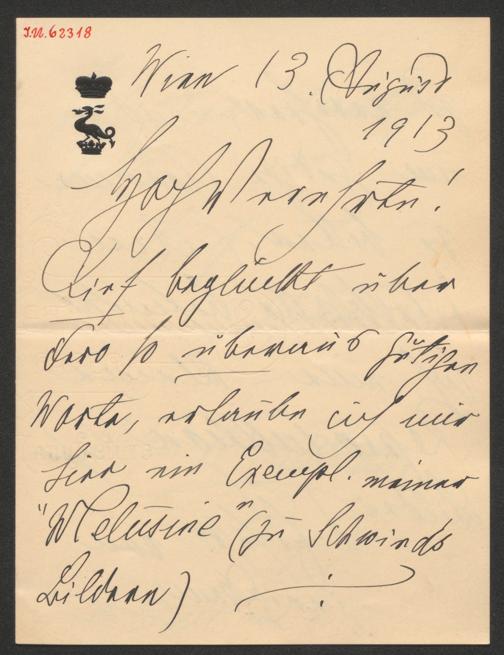 I.N. 62318
Wien 13. August
1913
HochVerehrte!
Tief beglückt über
Dero so überaus gütigen
Worte, erlaube ich mir
hier ein Exempl. meiner
"Melusine" (zu Schwinds
Bildern)